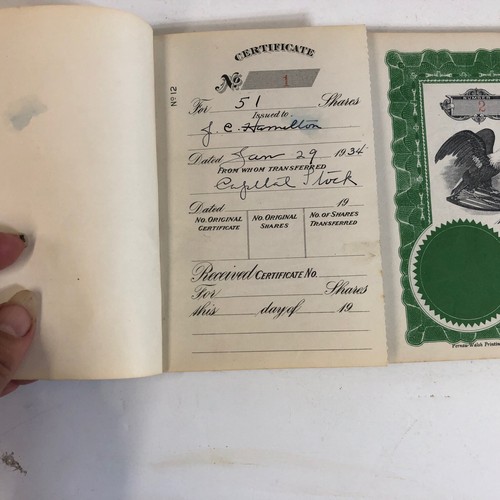 CERTIFICATE
No. 1
No 12
For 51 Shares
Issued to
J. C. Hamilton
Dated Jan 29 1934
FROM WHOM TRANSFERRED
Capital Stock
Dated 19
NO. ORIGINAL CERTIFICATE
NO. ORIGINAL SHARES
NO. OF SHARES TRANSFERRED
Received CERTIFICATE NO.
For Shares
this day of 19
NUMBER
2